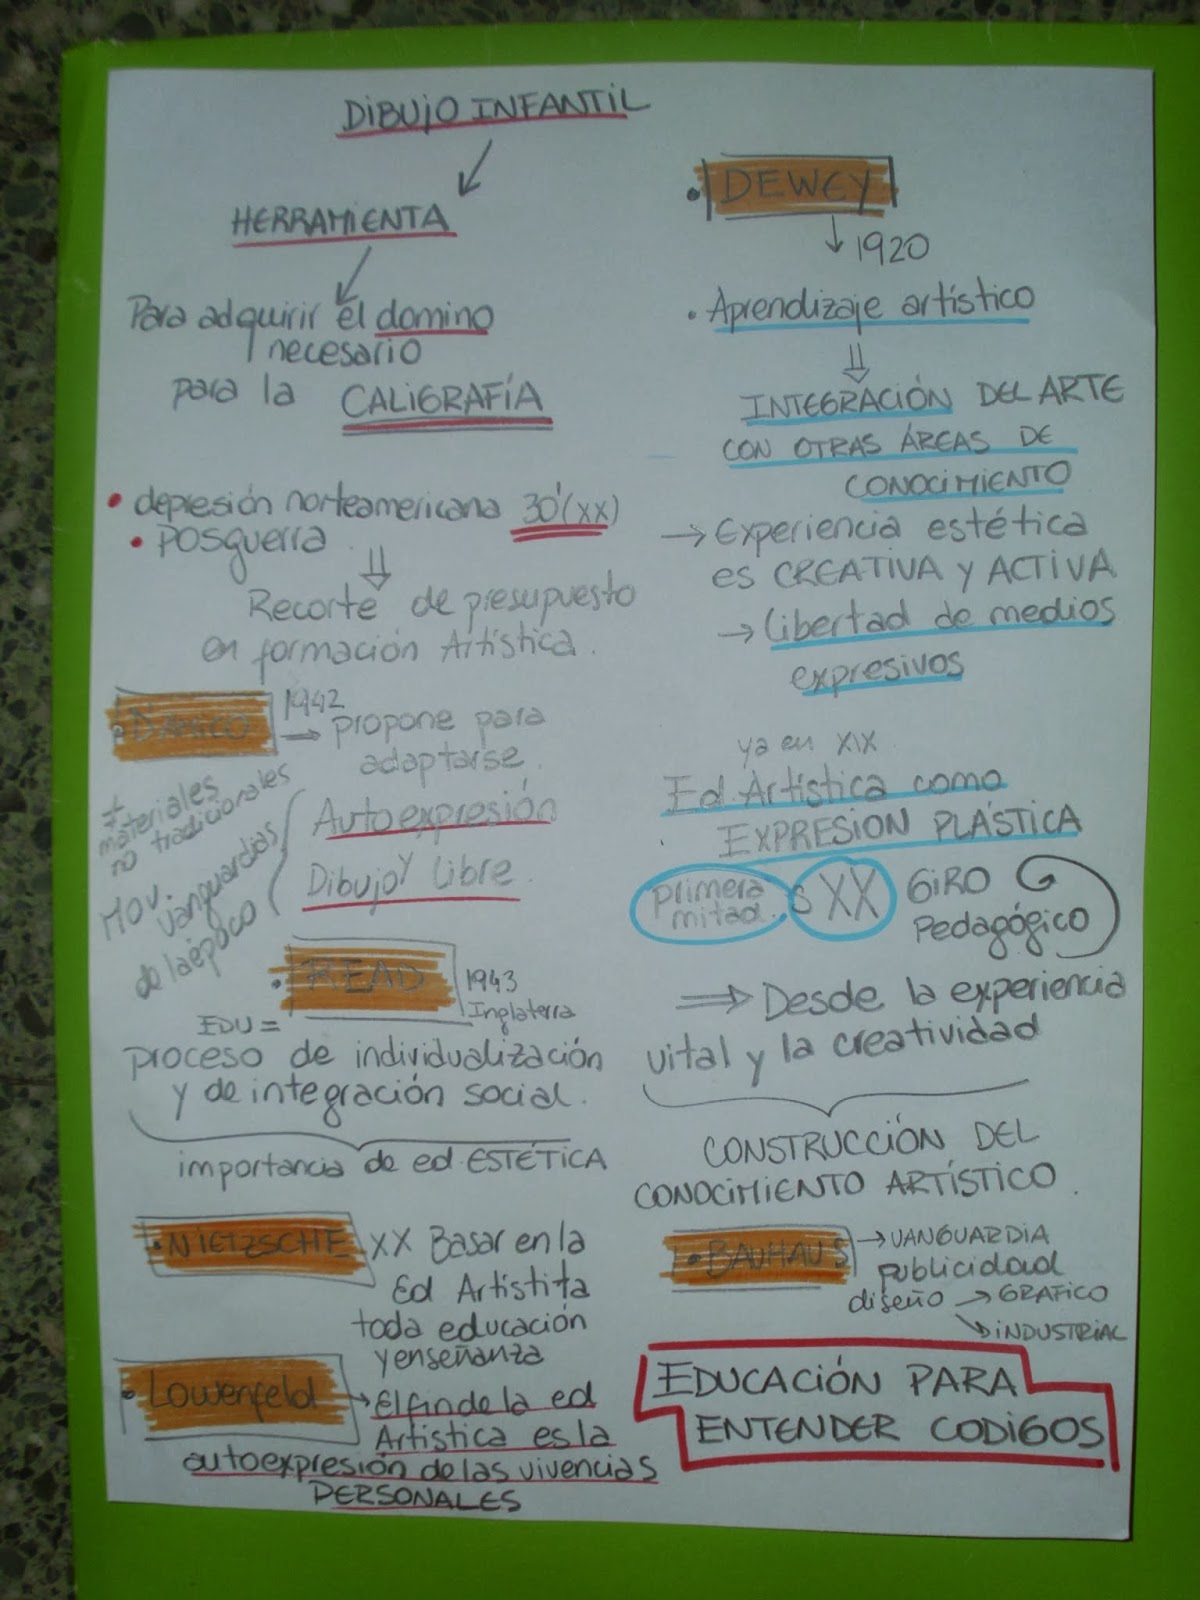 DIBUJO INFANTIL
HERRAMIENTA
Para adquirir el domino
necesario
para la CALIGRAFÍA
• depresión norteamericana 30'(XX)
• POSguerra
⇓
Recorte de presupuesto
en formación Artística.
• D'AMICO 1942
→ propone para
adaptarse.
Autoexpresión
y
Dibujo Libre
≠
materiales
no tradicionales
MOV. vanguardias
de la época
• READ 1943
Inglaterra
EDU =
proceso de individualización
y de integración social.
importancia de ed. ESTÉTICA
• NIETZSCHE XX Basar en la
Ed Artistita
toda educación
y enseñanza
• Lowenfeld → El fin de la ed
Artistica es la
autoexpresión de las vivencias
PERSONALES
• DEWEY
↓ 1920
• Aprendizaje artístico
⇓
INTEGRACIÓN DEL ARTE
CON OTRAS ÁREAS DE
CONOCIMIENTO
→ Experiencia estética
es CREATIVA y ACTIVA
→ Libertad de medios
expresivos
ya en XIX
Ed. Artística como
EXPRESION PLÁSTICA
primera
mitad. S XX GIRO
Pedagógico
⇒ Desde la experiencia
vital y la creatividad
CONSTRUCCIÓN DEL
CONOCIMIENTO ARTÍSTICO.
• BAUHAUS → VANGUARDIA
publicidad
diseño → GRAFICO
↘ INDUSTRIAL
EDUCACIÓN PARA
ENTENDER CODIGOS